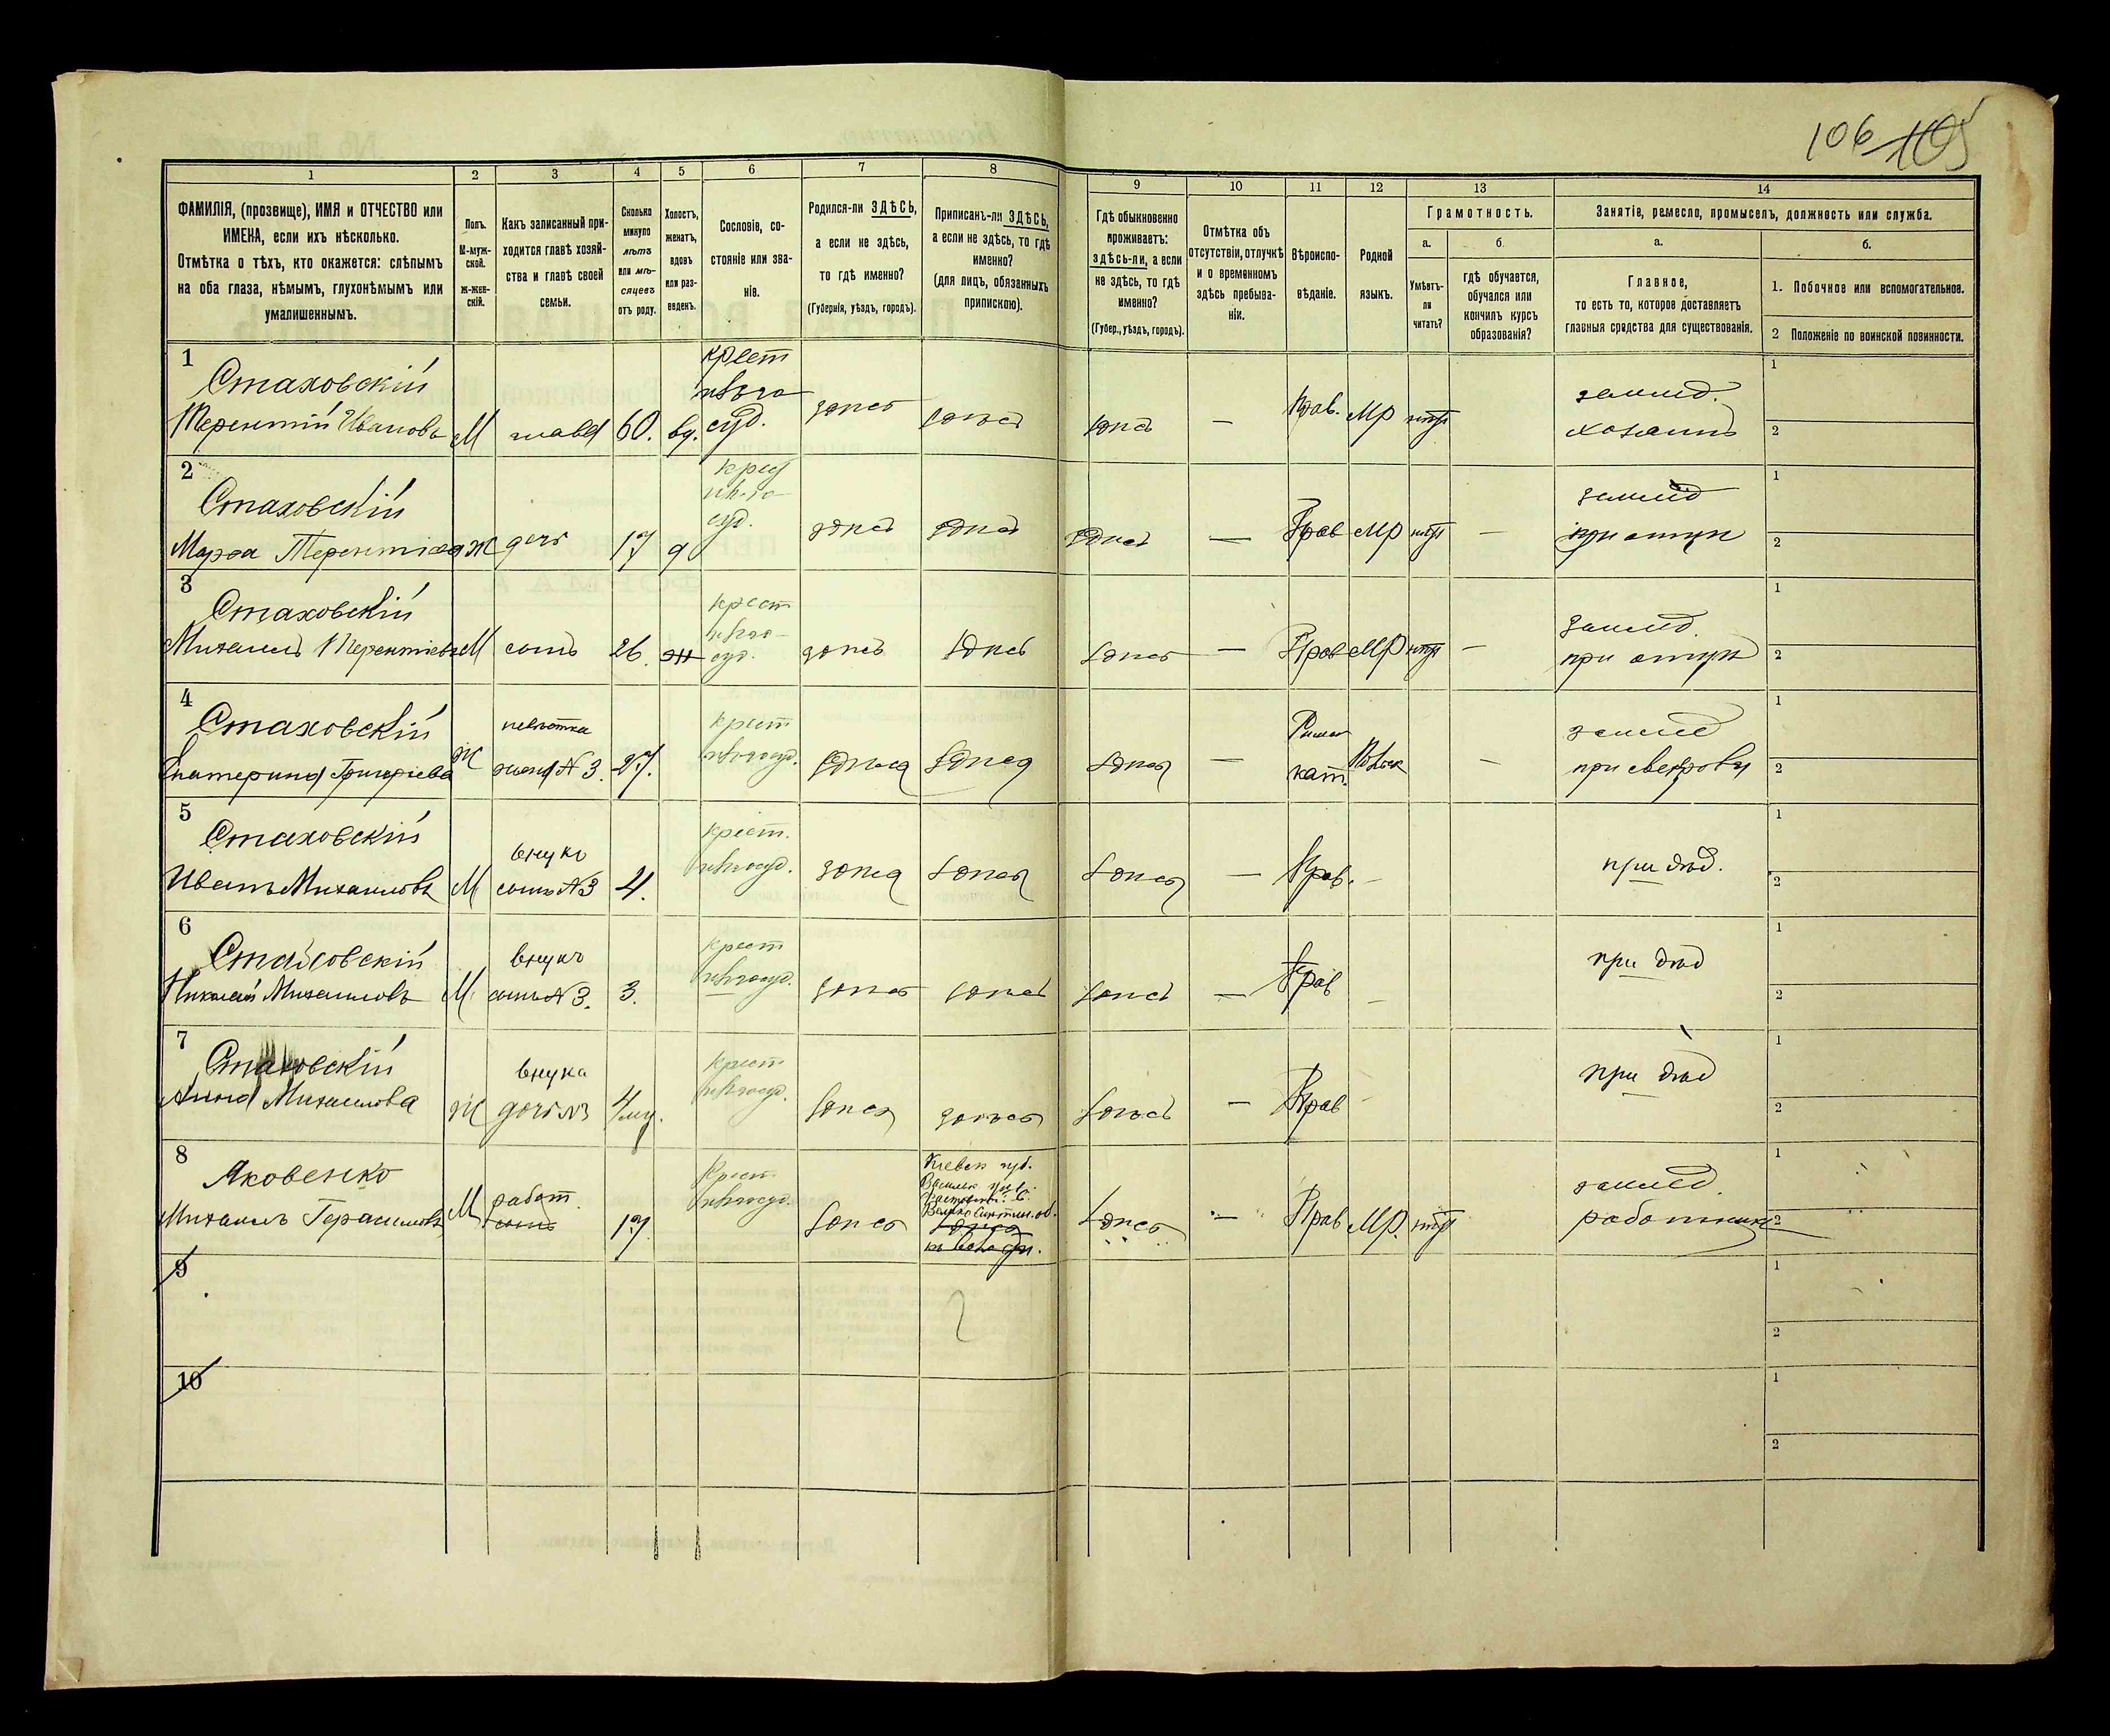 106 105
1
2
3
4
5
6
7
8
9
10
11
12
13
14
ФАМИЛІЯ, (прозвище), ИМЯ и ОТЧЕСТВО или
ИМЕНА, если ихъ нѣсколько.
Отмѣтка о тѣхъ, кто окажется: слѣпымъ
на оба глаза, нѣмымъ, глухонѣмымъ или
умалишеннымъ.
Полъ.
М-муж-
ской.
Ж-жен-
скій.
Какъ записанный при-
ходится главѣ хозяй-
ства и главѣ своей
семьи.
Сколько
минуло
лѣтъ
или мѣ-
сяцевъ
отъ роду.
Холостъ,
женатъ,
вдовъ
или раз-
веденъ.
Сословіе, со-
стояніе или зва-
ніе.
Родился-ли ЗДѢСЬ,
а если не здѣсь,
то гдѣ именно?
(Губернія, уѣздъ, городъ).
Приписанъ-ли ЗДѢСЬ,
а если не здѣсь, то гдѣ
именно?
(для лицъ, обязанныхъ
припискою).
Гдѣ обыкновенно
проживаетъ:
здѣсь-ли, а если
не здѣсь, то гдѣ
именно?
(Губер., уѣздъ, городъ).
Отмѣтка объ
отсутствіи, отлучкѣ
и о временномъ
здѣсь пребыва-
ніи.
Вѣроиспо-
вѣданіе.
Родной
языкъ.
Грамотность.
а.
Умѣетъ-
ли
читать?
б.
гдѣ обучается,
обучался или
кончилъ курсъ
образованія?
Занятіе, ремесло, промыселъ, должность или служба.
а.
Главное,
то есть то, которое доставляетъ
главныя средства для существованія.
б.
1. Побочное или вспомогательное.
2 Положеніе по воинской повинности.
1
Стаховскій
Терентій Ивановъ М 60. вд. здѣсь здѣсь здѣсь — Прав. МР нѣтъ
землед.
хозяинъ
1
2
2
Стаховскій
Марфа Терентіева Ж дочь 17 д здѣсь здѣсь здѣсь — Прав МР нѣтъ —
землед
при отцѣ
1
2
3
Стаховскій
Михаилъ Терентіевъ М сынъ 26. ж здѣсь здѣсь здѣсь — Прав МР нѣтъ —
крест
землед.
при отцѣ
1
2
4
Стаховскій
Екатерина Григорьева Ж
невѣстка
жена № 3. 27.
крест
здѣсь здѣсь здѣсь —
Римск
кат. Польск —
землед
при свекрови
1
2
5
Стаховскій
Иванъ Михаиловъ М
внукъ
сынъ № 3 4.
крест.
здѣсь здѣсь здѣсь — Прав. —
при дѣд.
1
2
6
Стаховскій
Николай Михаиловъ М.
внукъ
сынъ № 3. 3.
крест
здѣсь здѣсь здѣсь — Прав —
при дѣд
1
2
7
Стаховскій
Анна Михаилова Ж
внука
дочь № 3
крест
здѣсь здѣсь здѣсь — Прав —
при дѣд
1
2
8
Яковенко
Михаилъ Герасимовъ М
работ.
сынъ
17
Крест
здѣсь
Кіевск губ.
здѣсь — Прав МР. нѣтъ
землед.
работникъ
1
2
9
1
2
10
1
2